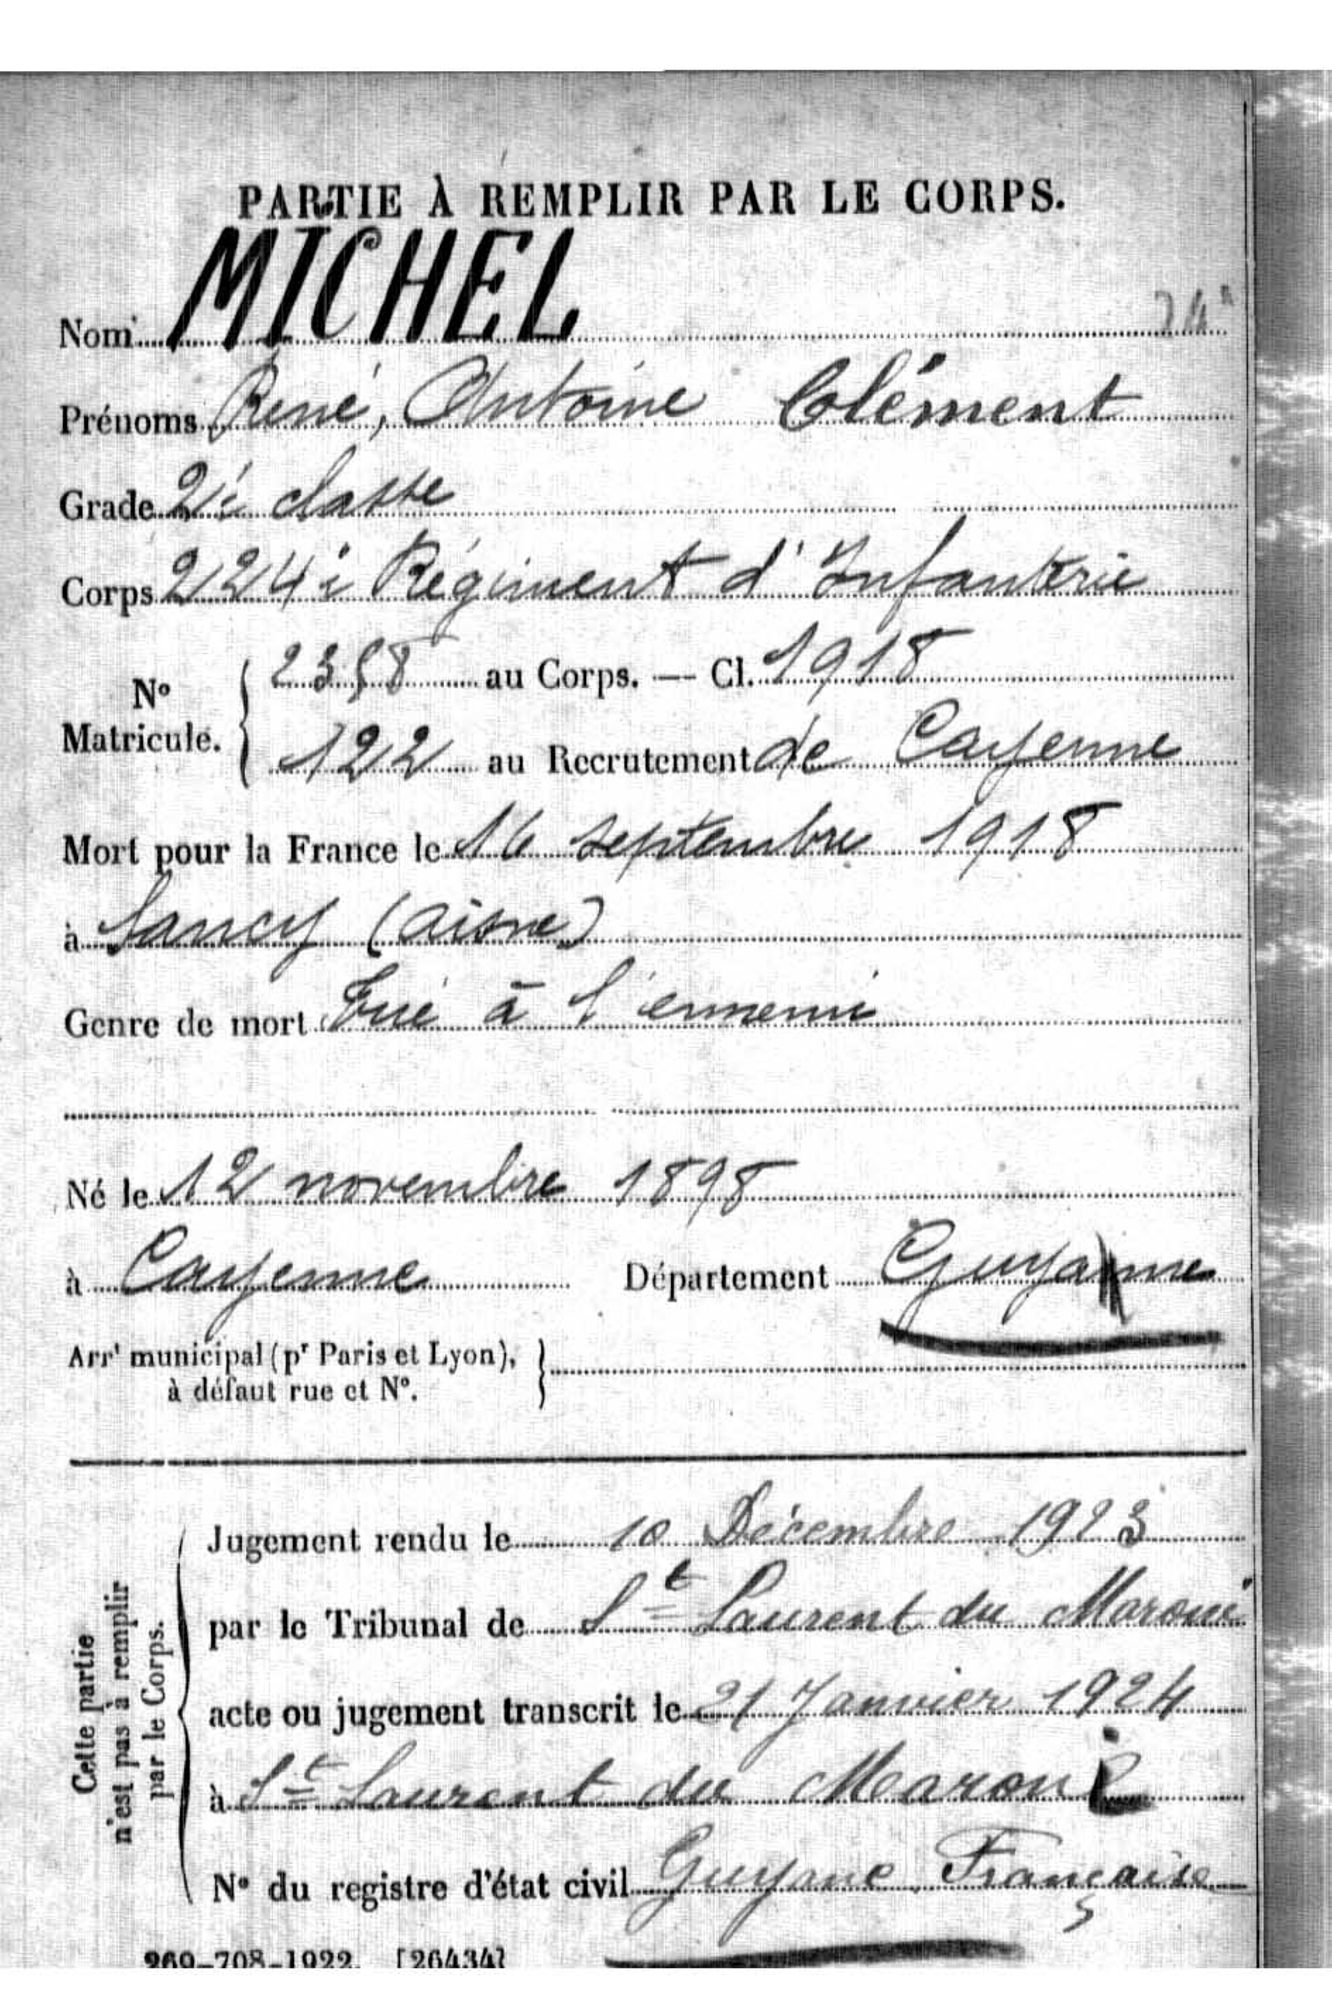 PARTIE À REMPLIR PAR LE CORPS.
Nom MICHEL
Prénoms René, Antoine Clément
Grade 2è classe
Corps 224è Régiment d'Infanterie
N° Matricule. { 2358 au Corps. — Cl. 1918
122 au Recrutement de Cayenne
Mort pour la France le 16 septembre 1918
à Sancy (Aisne)
Genre de mort Tué à l'ennemi
Né le 12 novembre 1898
à Cayenne Département Guyanne
Arrt municipal (pr Paris et Lyon), }
à défaut rue et N°.
Cette partie
n'est pas à remplir
par le Corps.
Jugement rendu le 10 Décembre 1923
par le Tribunal de St Laurent du Maroni
acte ou jugement transcrit le 21 Janvier 1924
à St Laurent du Maroni
N° du registre d'état civil Guyane Française
269-708-1922. [26434]